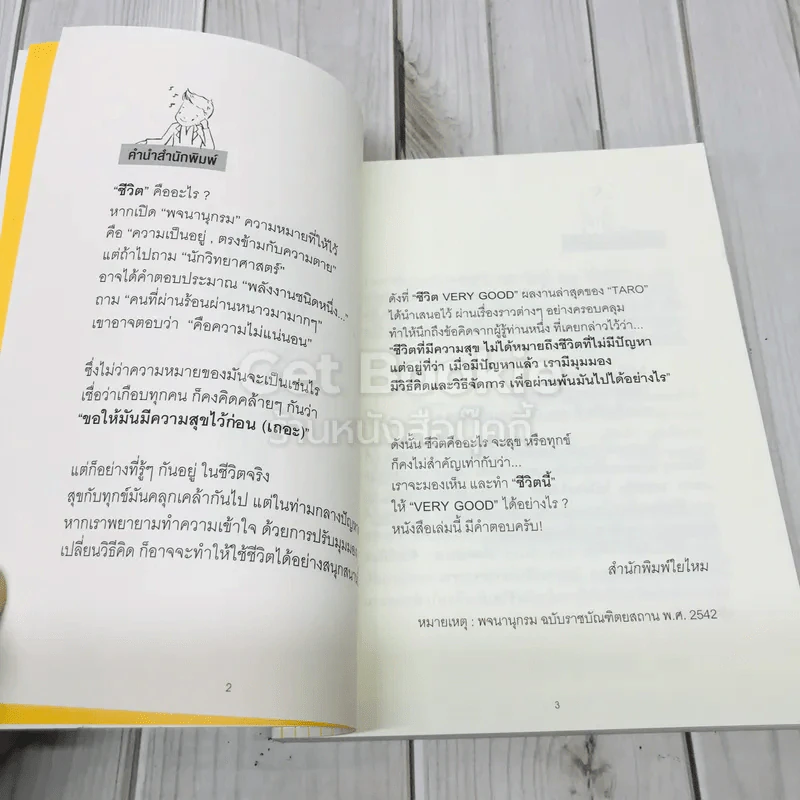 คำนำสำนักพิมพ์
"ชีวิต" คืออะไร ?
หากเปิด "พจนานุกรม" ความหมายที่ให้ไว้
คือ "ความเป็นอยู่ , ตรงข้ามกับความตาย"
แต่ถ้าไปถาม "นักวิทยาศาสตร์"
อาจได้คำตอบประมาณ "พลังงานชนิดหนึ่ง..."
ถาม "คนที่ผ่านร้อนผ่านหนาวมามากๆ"
เขาอาจตอบว่า "คือความไม่แน่นอน"
ซึ่งไม่ว่าความหมายของมันจะเป็นเช่นไร
เชื่อว่าเกือบทุกคน ก็คงคิดคล้ายๆ กันว่า
"ขอให้มันมีความสุขไว้ก่อน (เถอะ)"
แต่ก็อย่างที่รู้ๆ กันอยู่ ในชีวิตจริง
สุขกับทุกข์มันคลุกเคล้ากันไป แต่ในท่ามกลางปัญหา
หากเราพยายามทำความเข้าใจ ด้วยการปรับมุมมอง
เปลี่ยนวิธีคิด ก็อาจจะทำให้ใช้ชีวิตได้อย่าง
2
ดังที่ "ชีวิต VERY GOOD" ผลงานล่าสุดของ "TARO"
ได้นำเสนอไว้ ผ่านเรื่องราวต่างๆ อย่างครอบคลุม
ทำให้นึกถึงข้อคิดจากผู้รู้ท่านหนึ่ง ที่เคยกล่าวไว้ว่า...
"ชีวิตที่มีความสุข ไม่ได้หมายถึงชีวิตที่ไม่มีปัญหา
แต่อยู่ที่ว่า เมื่อมีปัญหาแล้ว เรามีมุมมอง
มีวิธีคิดและวิธีจัดการ เพื่อผ่านพ้นมันไปได้อย่างไร"
ดังนั้น ชีวิตคืออะไร จะสุข หรือทุกข์
ก็คงไม่สำคัญเท่ากับว่า...
เราจะมองเห็น และทำ "ชีวิตนี้"
ให้ "VERY GOOD" ได้อย่างไร ?
หนังสือเล่มนี้ มีคำตอบครับ!
สำนักพิมพ์ใยไหม
หมายเหตุ : พจนานุกรม ฉบับราชบัณฑิตยสถาน พ.ศ. 2542
3
Get Bookie
ร้านหนังสือบุ๊คกี้